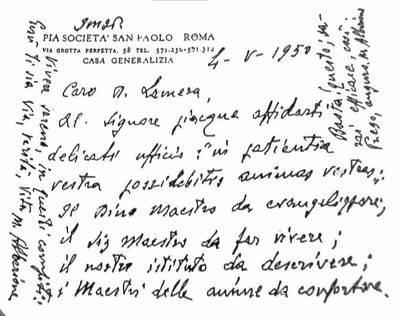 PIA SOCIETÀ SAN PAOLO ROMA
VIA GROTTA PERFETTA, 58 TEL. 571.230-571.314
CASA GENERALIZIA
4-V-1950
Caro D. Lamera,
Al Signore piacque affidarti
delicati ufficii: "in patientia
vestra possidebitis animas vestras":
Il Divino Maestro da evangelizzare;
il Maestro da far vivere;
il nostro istituto da descrivere;
i Maestri delle anime da confortare.
Basta questo;
Prego, auguro. M. Alberione
Vivere sereno, in questi conforti;
Egli ti sia Via, Verità, Vita M. Alberione